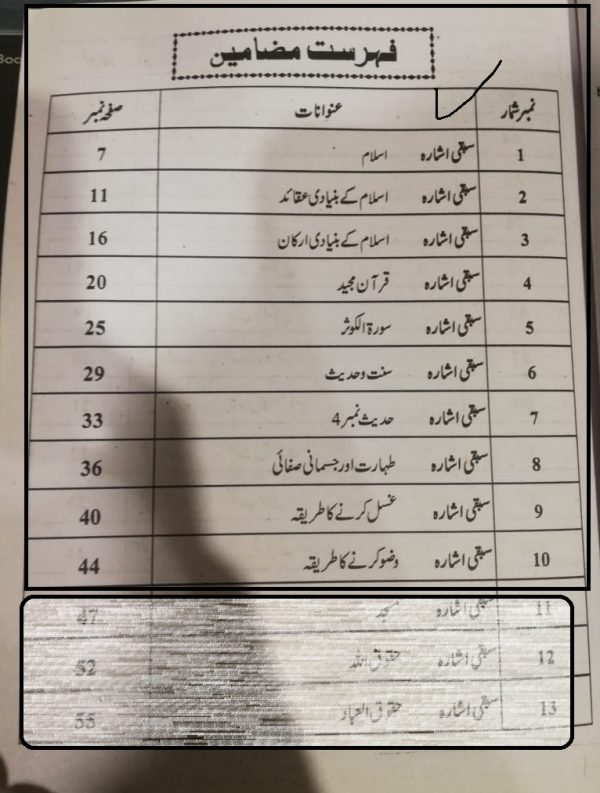 فہرست مضامین
نمبر شمار عنوانات صفحہ نمبر
1 سبقی اشارہ اسلام 7
2 سبقی اشارہ اسلام کے بنیادی عقائد 11
3 سبقی اشارہ اسلام کے بنیادی ارکان 16
4 سبقی اشارہ قرآن مجید 20
5 سبقی اشارہ سورۃ الکوثر 25
6 سبقی اشارہ سنت وحدیث 29
7 سبقی اشارہ حدیث نمبر 4 33
8 سبقی اشارہ طہارت اور جسمانی صفائی 36
9 سبقی اشارہ غسل کرنے کا طریقہ 40
10 سبقی اشارہ وضو کرنے کا طریقہ 44
11 سبقی اشارہ مسجد 47
12 سبقی اشارہ حقوق اللہ 52
13 سبقی اشارہ حقوق العباد 55